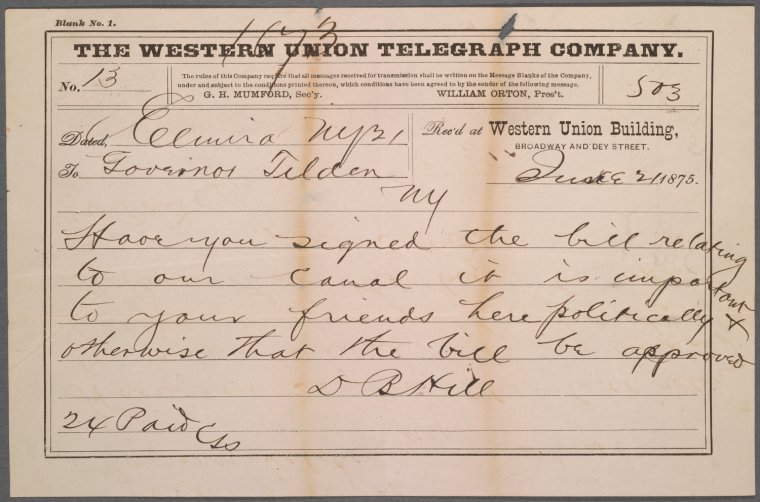 Blank No. 1.
1673
THE WESTERN UNION TELEGRAPH COMPANY.
No. 13
The rules of this Company require that all messages received for transmission shall be written on the Message Blanks of the Company,
under and subject to the conditions printed thereon, which conditions have been agreed to by the sender of the following message.
G. H. MUMFORD, Sec'y. WILLIAM ORTON, Pres't.
503
Dated, Elmira NY 21
Rec'd at Western Union Building,
BROADWAY AND DEY STREET.
To Governor Tilden
June 21 1875.
NY
Have you signed the bill relating
to our canal it is important
to your friends here politically &
otherwise that the bill be approved
D B Hill
24 Paid